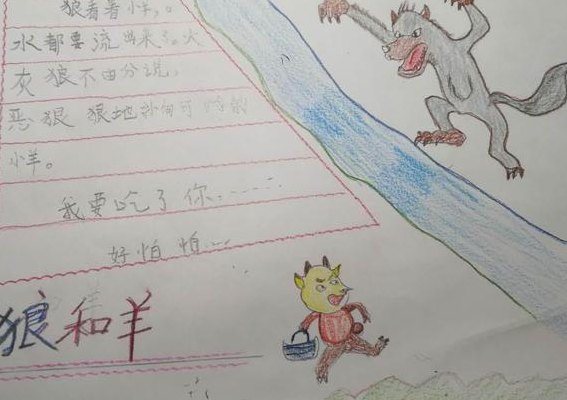 狼看着小羊，。
水都要流出来。大
灰狼不由分说，
恶狠狠地扑向可怜的
小羊。
我要吃了你......
好怕怕...
狼和羊